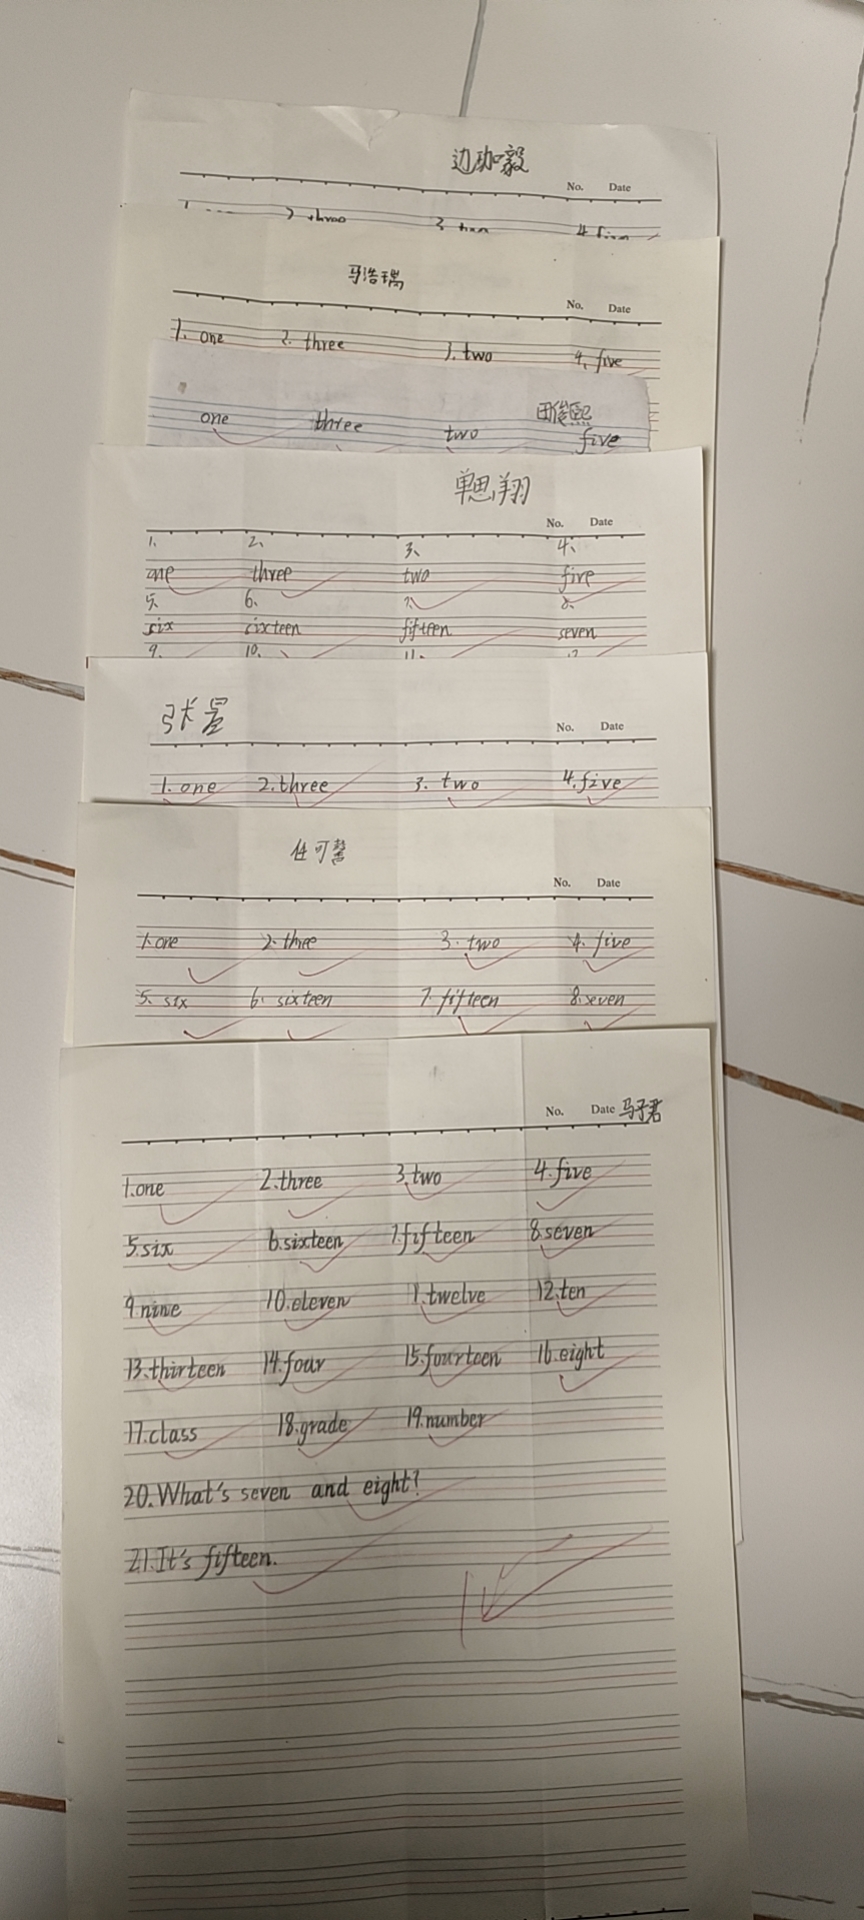 边珈毅
No. Date
2 three 3 two 4 five
马浩瑞
No. Date
1. one 2. three 3. two 4. five
田俊熙
one three two five
单思翔
No. Date
1、 2、 3、 4、
one three two five
5、 6、 7、 8、
six sixteen fifteen seven
9. 10、 11、 12
张景
No. Date
1. one 2. three 3. two 4. five
任可馨
No. Date
1. one 2. three 3. two 4. five
5. six 6. sixteen 7. fifteen 8. seven
No. Date 马子君
1.one 2.three 3.two 4.five
5.six 6.sixteen 7.fifteen 8.seven
9.nine 10.eleven 11.twelve 12.ten
13.thirteen 14.four 15.fourteen 16.eight
17.class 18.grade 19.number
20.What's seven and eight?
21.It's fifteen.